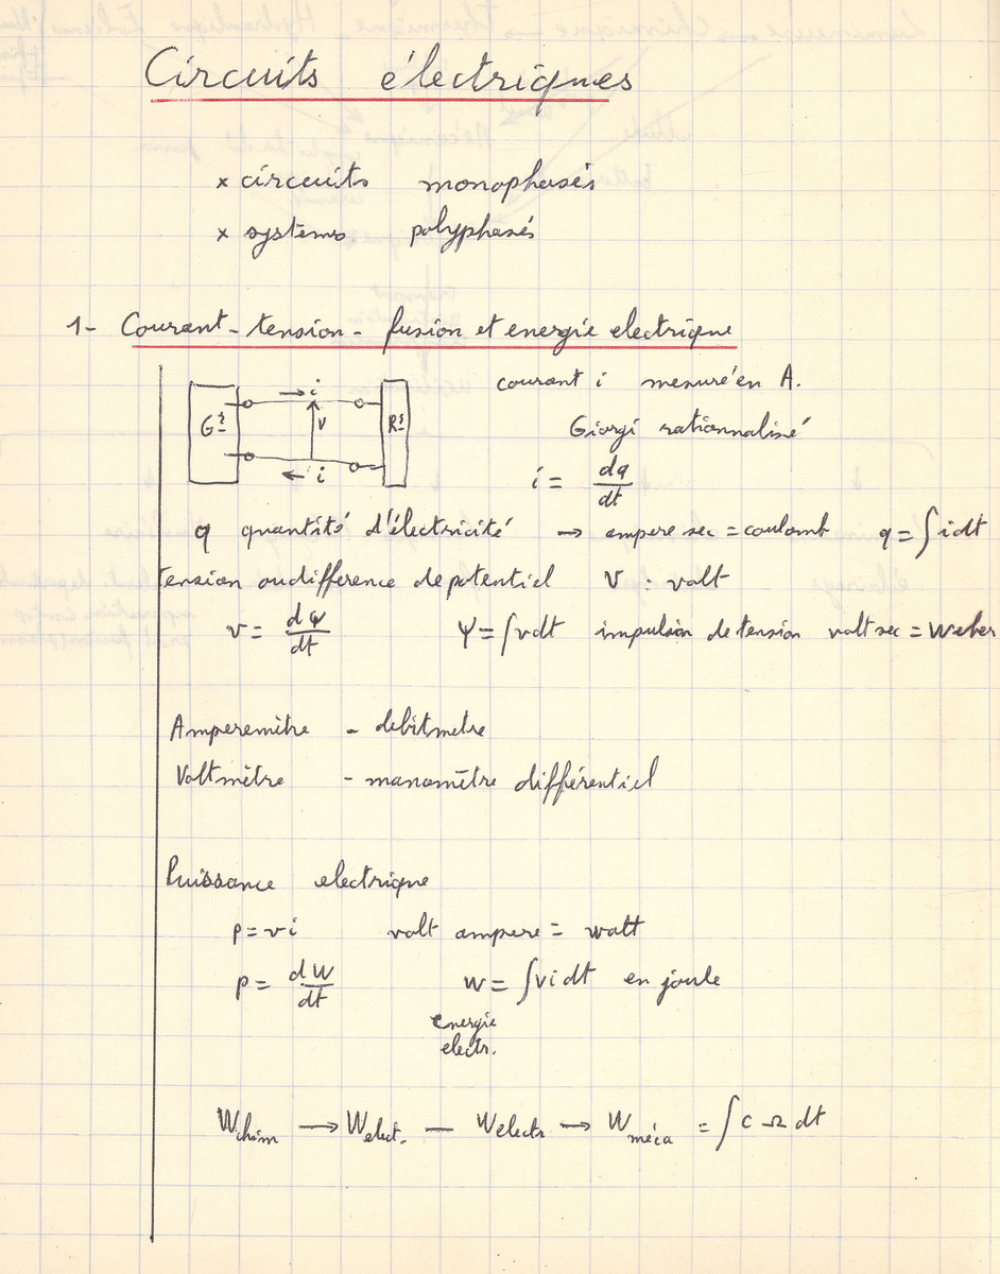 Circuits électriques
x circuits monophasés
x systèmes polyphasés
1- Courant - tension - fusion et energie electrique
G? → i V R? ← i
courant i mesuré en A.
Giorgi rationnalisé
i = dq/dt
q quantité d'électricité → ampere sec = coulomb q = ∫ i dt
Tension ou difference de potentiel V : volt
v = dψ/dt ψ = ∫ v dt impulsion de tension volt sec = Weber
Amperemètre - debitmetre
Voltmètre - manomètre différentiel
Puissance electrique
p = v i volt ampere = watt
p = dW/dt w = ∫ v i dt en joule
energie
electr.
W chim → W elect. — W electr → W méca = ∫ C Ω dt